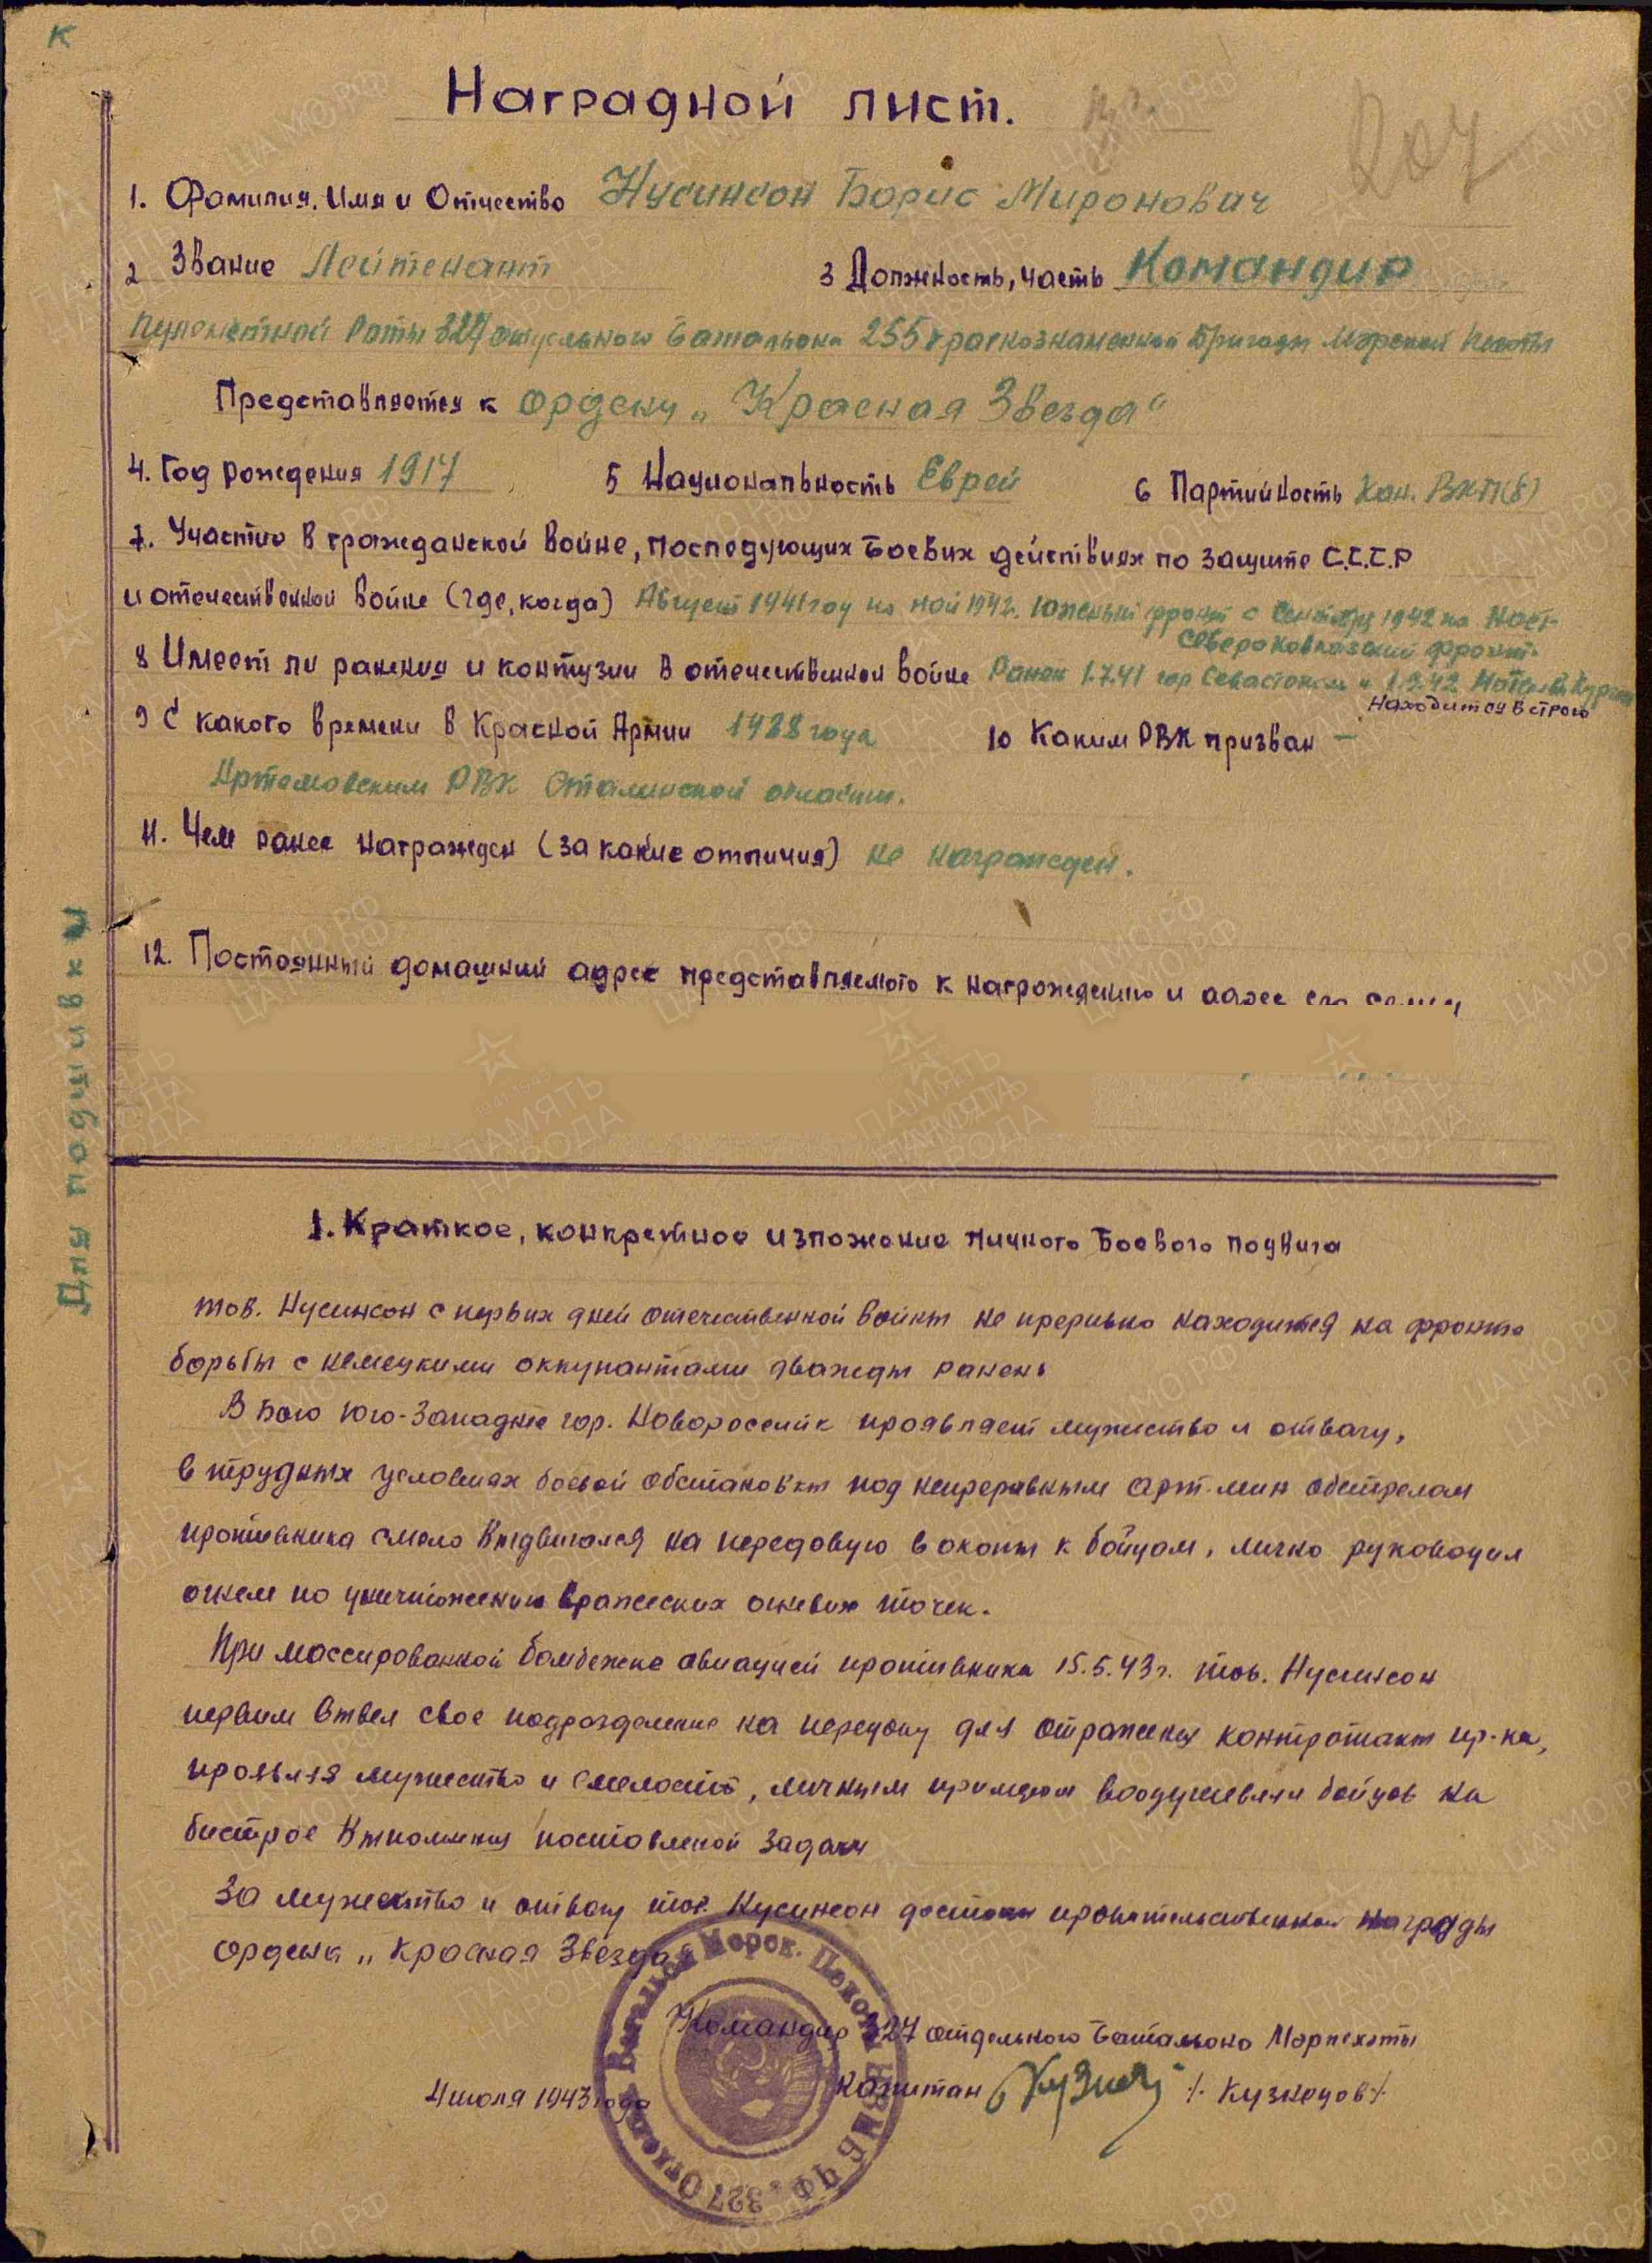 К
Наградной лист.
207
1. Фамилия, Имя и Отчество Нусинсон Борис Миронович
2 Звание Лейтенант 3 Должность, часть Командир
пулеметной роты 327 отдельного батальона 255 краснознаменной бригады Морской пехоты
Представляется к ордену „Красная Звезда“
4. Год рождения 1917 5 Национальность Еврей 6 Партийность Кан. ВКП(б)
7. Участие в гражданской войне, последующих боевых действиях по защите С.С.С.Р
и отечественной войне (где, когда) Август 1941 году по май 1942г. Южный фронт с Сентября 1942 по Наст.
Северокавказский фронт.
8 Имеет ли ранения и контузии в отечественной войне Ранен 1.7.41 гор Севастополь и 1.9.42
Находится в строю
9 С какого времени в Красной Армии 1938 года 10 Каким РВК призван —
Артемовским РВК Сталинской области.
11. Чем ранее награжден (за какие отличия) не награжден.
12. Постоянный домашний адрес представляемого к награждению и адрес его семьи
Для подшивки
1. Краткое, конкретное изложение личного боевого подвига
тов. Нусинсон с первых дней отечественной войны не прерывно находится на фронте
борьбы с немецкими оккупантами дважды ранень
В бою Юго-Западнее гор. Новороссийк проявляет мужество и отвагу,
в трудных условиях боевой обстановкы под непрерывным арт-мин обстрелом
противника смело выдвигался на передовую в окопы к бойцам, лично руководил
огнем по уничтожению вражеских огневых точек.
При массированной бомбежке авиацией противника 15.5.43г. тов. Нусинсон
первым ввел свое подразделение на передовую для отражения контратакы пр-ка,
проявляя мужество и смелость, личным примером воодушевлял бойцов на
быстрое выполнения поставленой задачи
За мужество и отвагу тов. Нусинсон достоин правительственной награды
ордена „Красная Звезда“
Командир 327 отдельного батальона Морпехоты
капитан /. Кузнецов /.
4 июля 1943 года
327 Отдельн. Батальон Морск. Пехоты ЧФ
ЦАМО РФ
ПАМЯТЬ НАРОДА